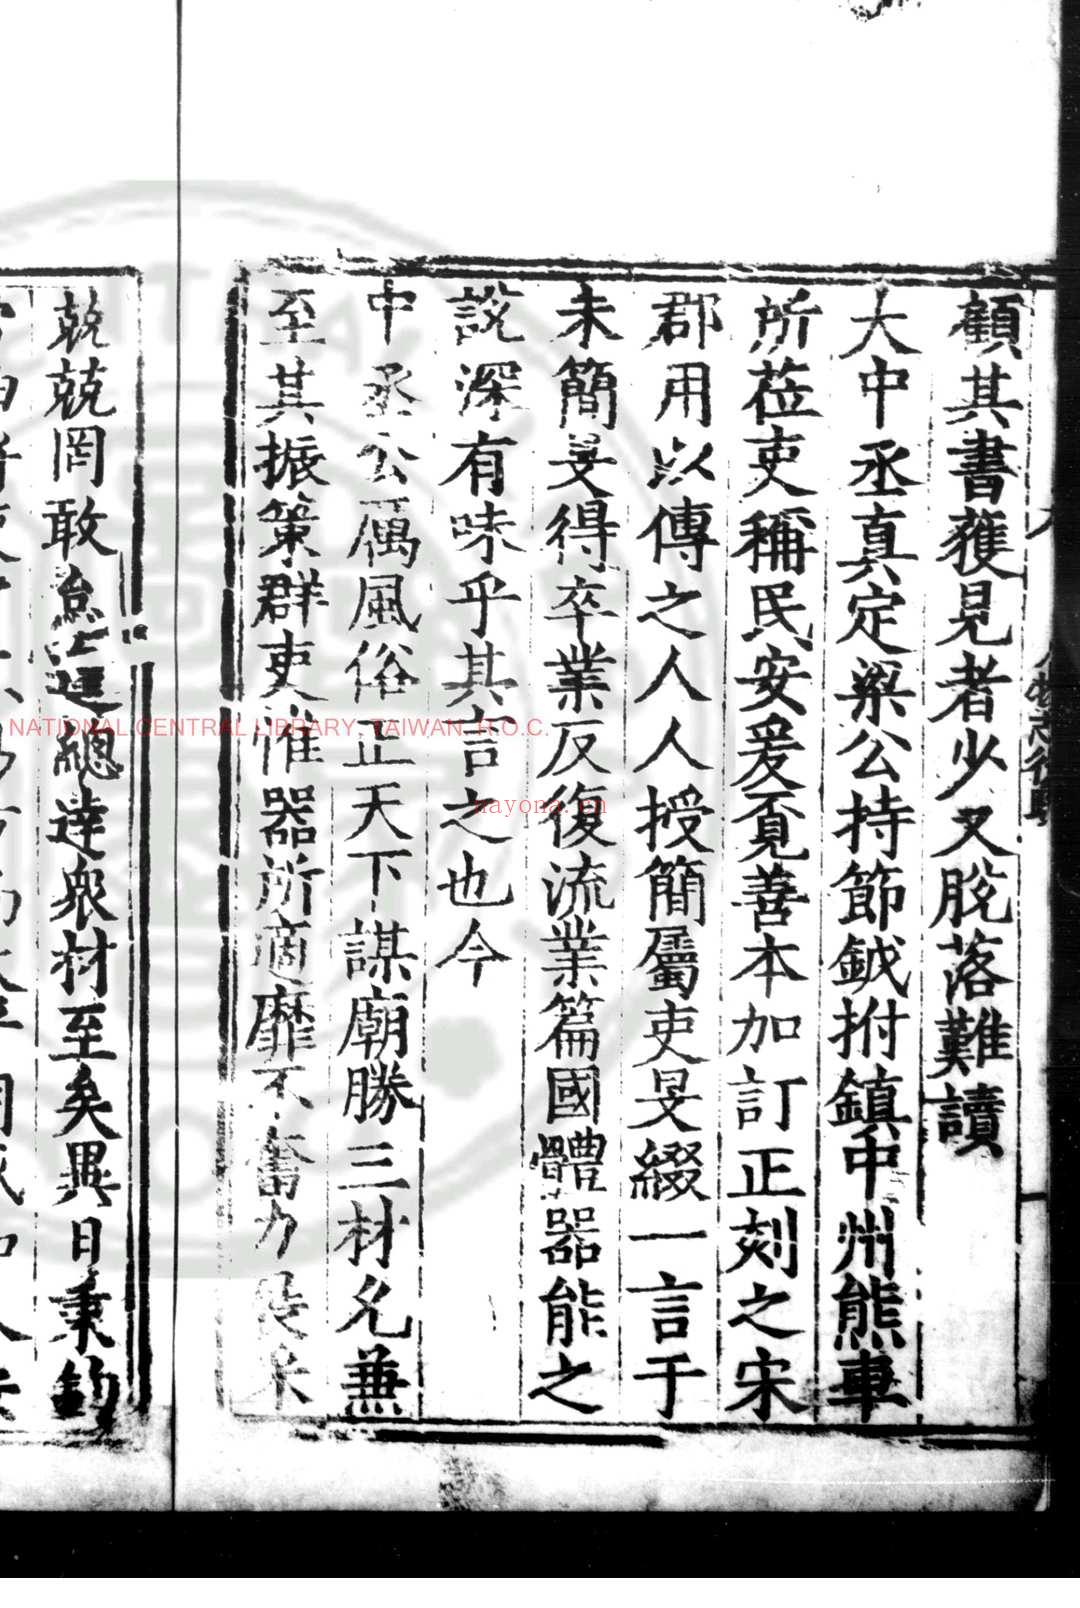 顧其書獲見者少又脫落難讀
大中丞真定梁公持節鉞拊鎮中州熊車
所莅吏稱民安爰覓善本加訂正刻之宋
郡用以傳之人人授簡屬吏旻綴一言于
末簡旻得卒業反復流業篇國體器能之
說深有味乎其言之也今
中丞公厲風俗正天下謀廟勝三材允兼
至其振策群吏惟器所適靡不奮力
兢兢罔敢怠
總達眾材至矣異日秉鈞
NATIONAL CENTRAL LIBRARY, TAIWAN, R.O.C.
nayona.cn